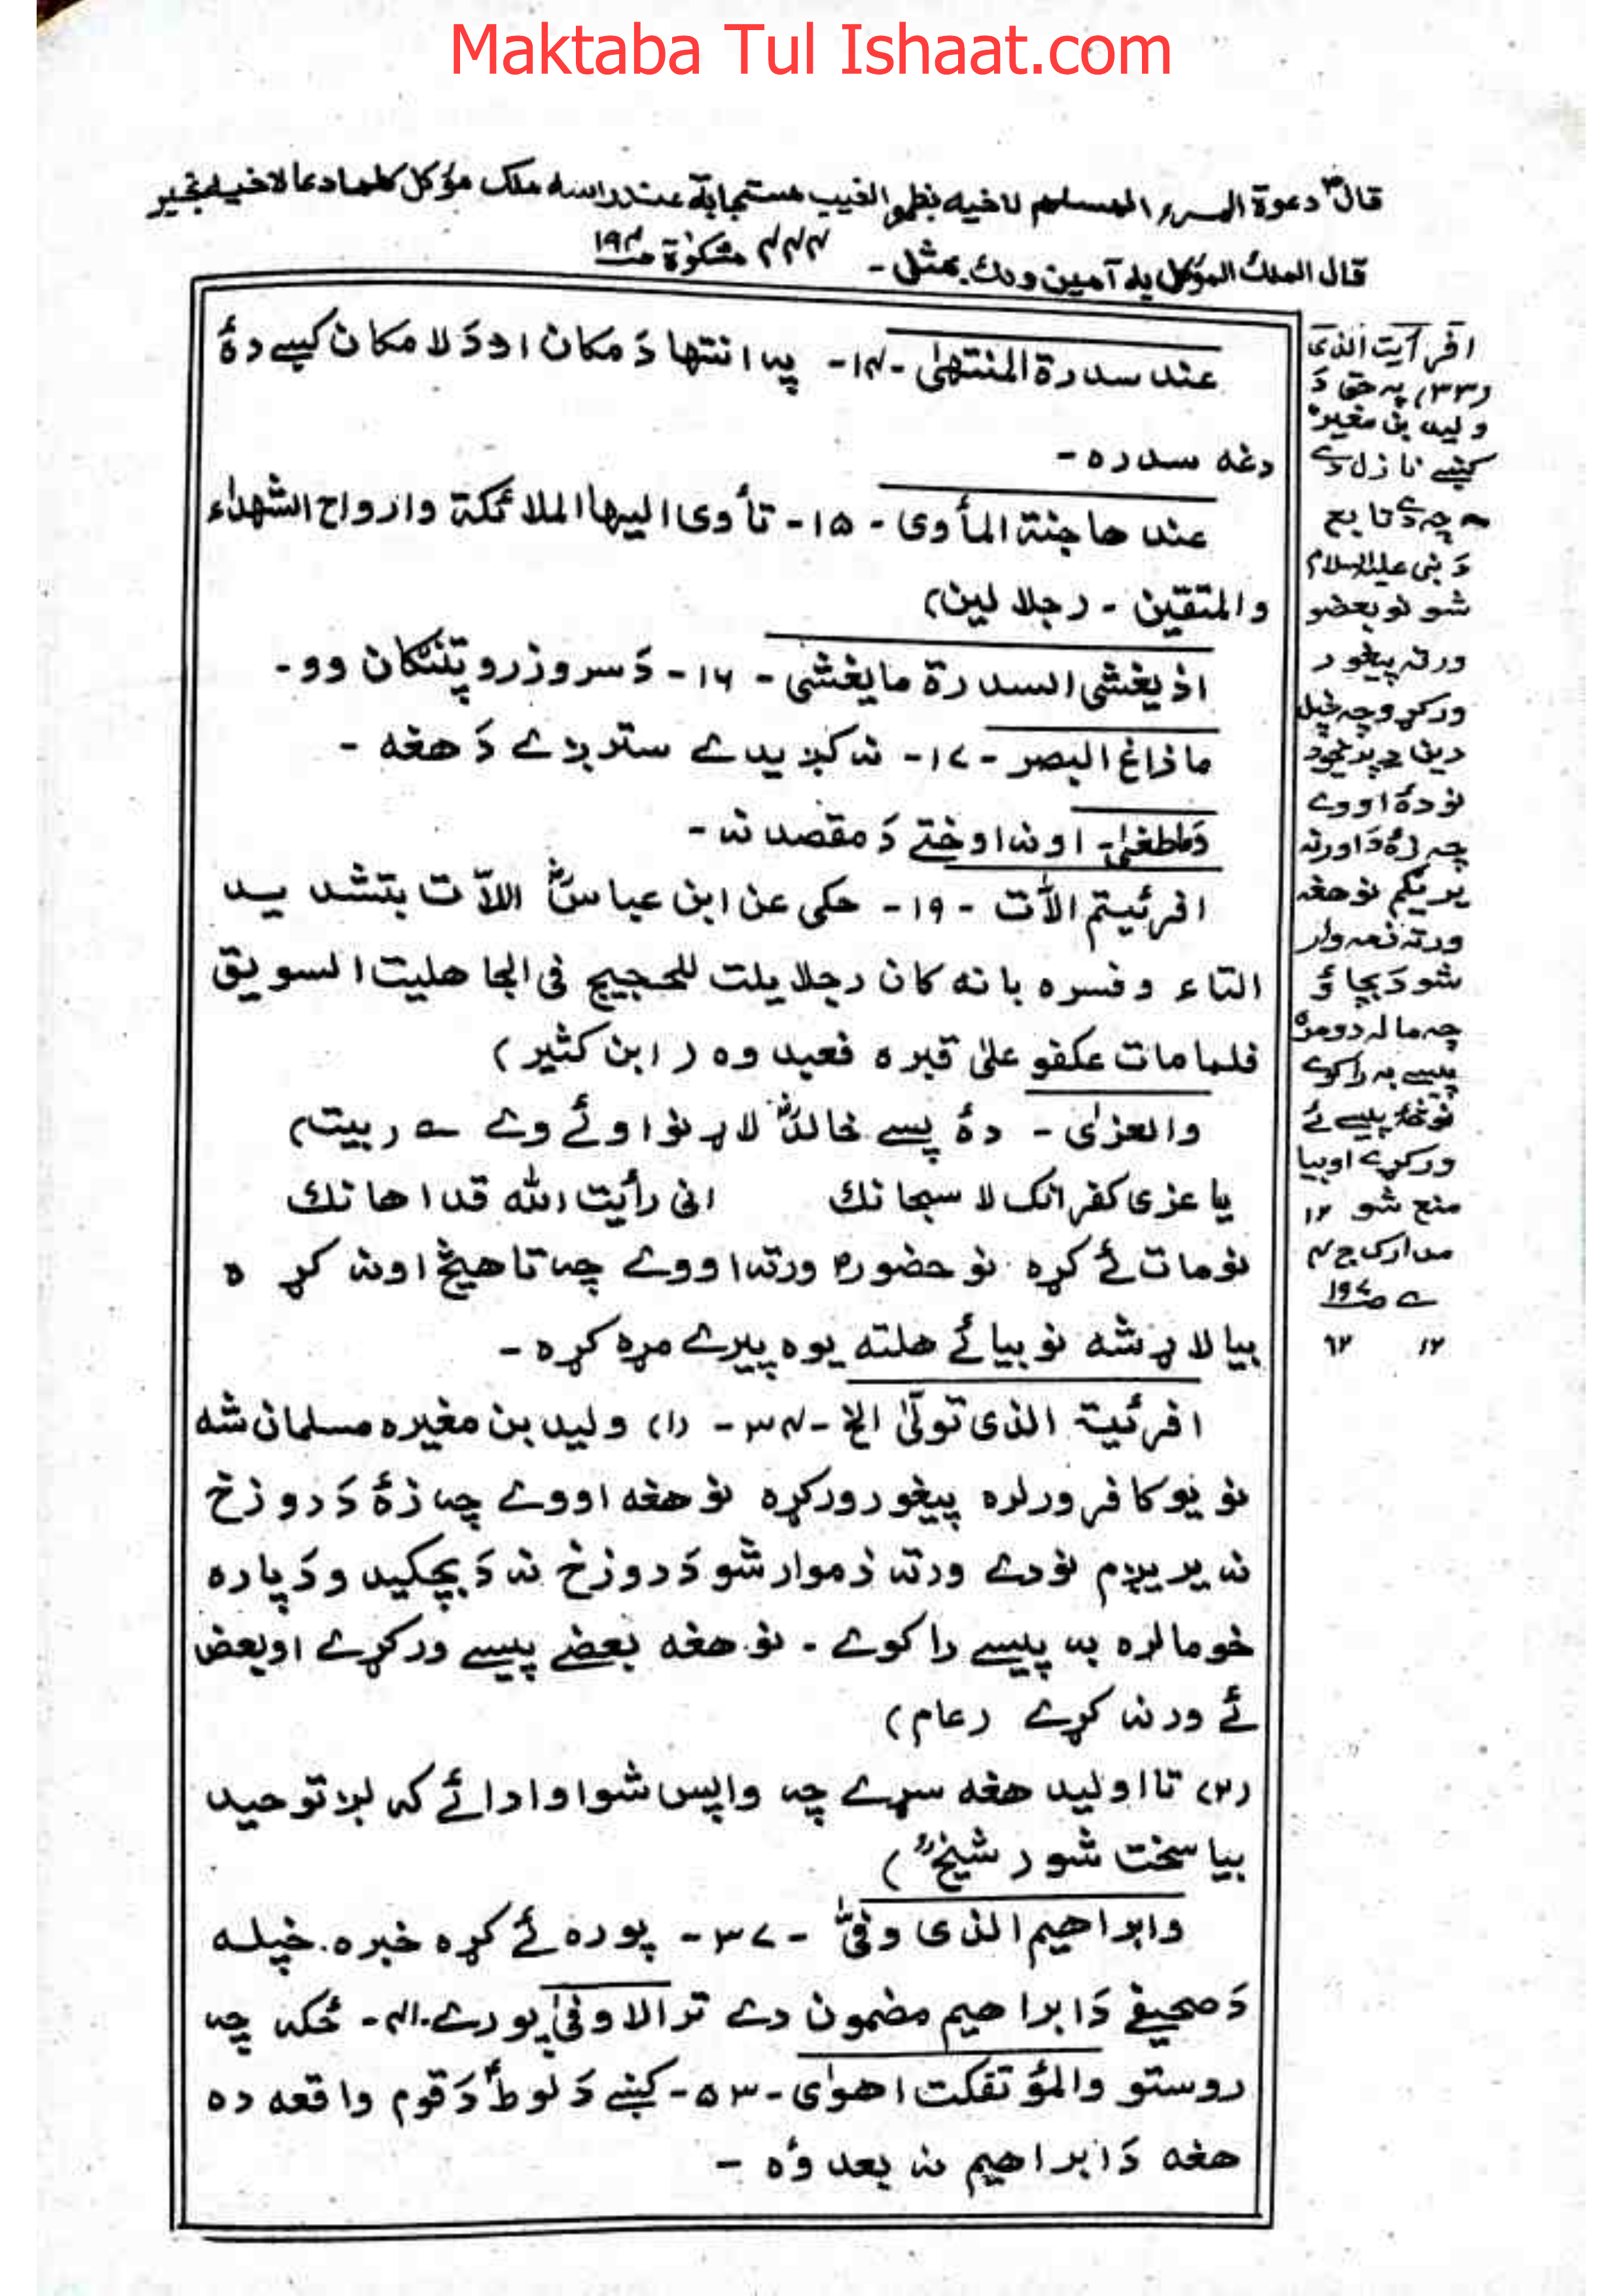 Maktaba Tul Ishaat.com
قال دعوة المسرء المسلم لاخيه بظهر الغيب مستجابة عندراسه ملک مؤکل کلما دعا لاخيه بخير
قال الملک المؤکل به آمين ولك بمثل - ۴۴۴ مشکوٰة ص۱۹۴
عند سدرة المنتهىٰ -۱۴- په انتها دَ مکان اودَ لا مکان کښے دۀ
دغه سدره -
عندها جنة المأوى - ۱۵ - تأوى اليها الملائکة وارواح الشهداء
والمتقين - (جلالين)
اذ يغشى السدرة ما يغشى - ۱۶ - دَ سرو زرو پتنګان وو -
ما زاغ البصر - ۱۷ - نه کږيدے سترږے دَ هغه -
وماطغىٰ - اونه اوختے دَ مقصد نه -
افرئيتم الّات - ۱۹ - حکى عن ابن عباسؓ اللاّت بتشديد
التاء وفسره بانه کان رجلا يلت للحجيج فى الجاهليت السويق
فلما مات عکفو علىٰ قبره فعبدوه (ابن کثير)
والعزىٰ - دۀ پسے خالدؓ لاړ نو اوئے وے ے (بيت)
يا عزى کفرانک لا سبحانك انى رأيت الله قد اهانك
نو مات ئے کړه نو حضورؐ ورته اووے چه تا هيڅ اونه کړه
بيا لاړ شه نو بيائے هلته يوه پيرے مړه کړه -
افرئيت الذى تولّىٰ الخ - ۳۴ - (۱) وليد بن مغيره مسلمان شه
نو يو کافر ورلره پيغور ورکړه نو هغه اووے چه زۀ دَ دوزخ
نه يريږم نو دے ورته ذموار شو دَ دوزخ نه دَ بچکيدو دَ پاره
خو مالره به پيسے راکوے - نو هغه بعضے پيسے ورکړے او بعض
ئے ورنه کړے (عام)
(۲) تا اوليد هغه سړے چه واپس شو اوادائے کړه توحيد
بيا سخت شو (شيخؒ)
وابراهيم الذى وفّىٰ - ۳۷ - پوره ئے کړه خبره خپله
دَ صحيفے دَ ابراهيم مضمون دے تر الاوفىٰ پورے ۴۱- ځکه چه
روستو والمؤتفکت اهوىٰ - ۵۳ - کښے دَ لوطؑ دَ قوم واقعه ده
هغه دَ ابراهيم نه بعد وُه -
افرايت الذى
(۳۳) په حق دَ
وليد بن مغيره
کښے نازل دے
چه دے تابع
دَ نبى عليه السلام
شو نو بعضو
ورته پيغور
ورکړو چه خپل
دين پريږدے
نو دۀ اووے
چه زۀ دَ اور نه
يريږم نو هغه
ورته ذمه وار
شو دَ بچاؤ
چه ما له دومره
پيسے به راکوے
نو څه پيسے ئے
ورکړے او بيا
منع شو ۱۲
مدارک ج۴
ص۱۹۷
۱۲ ۶۲